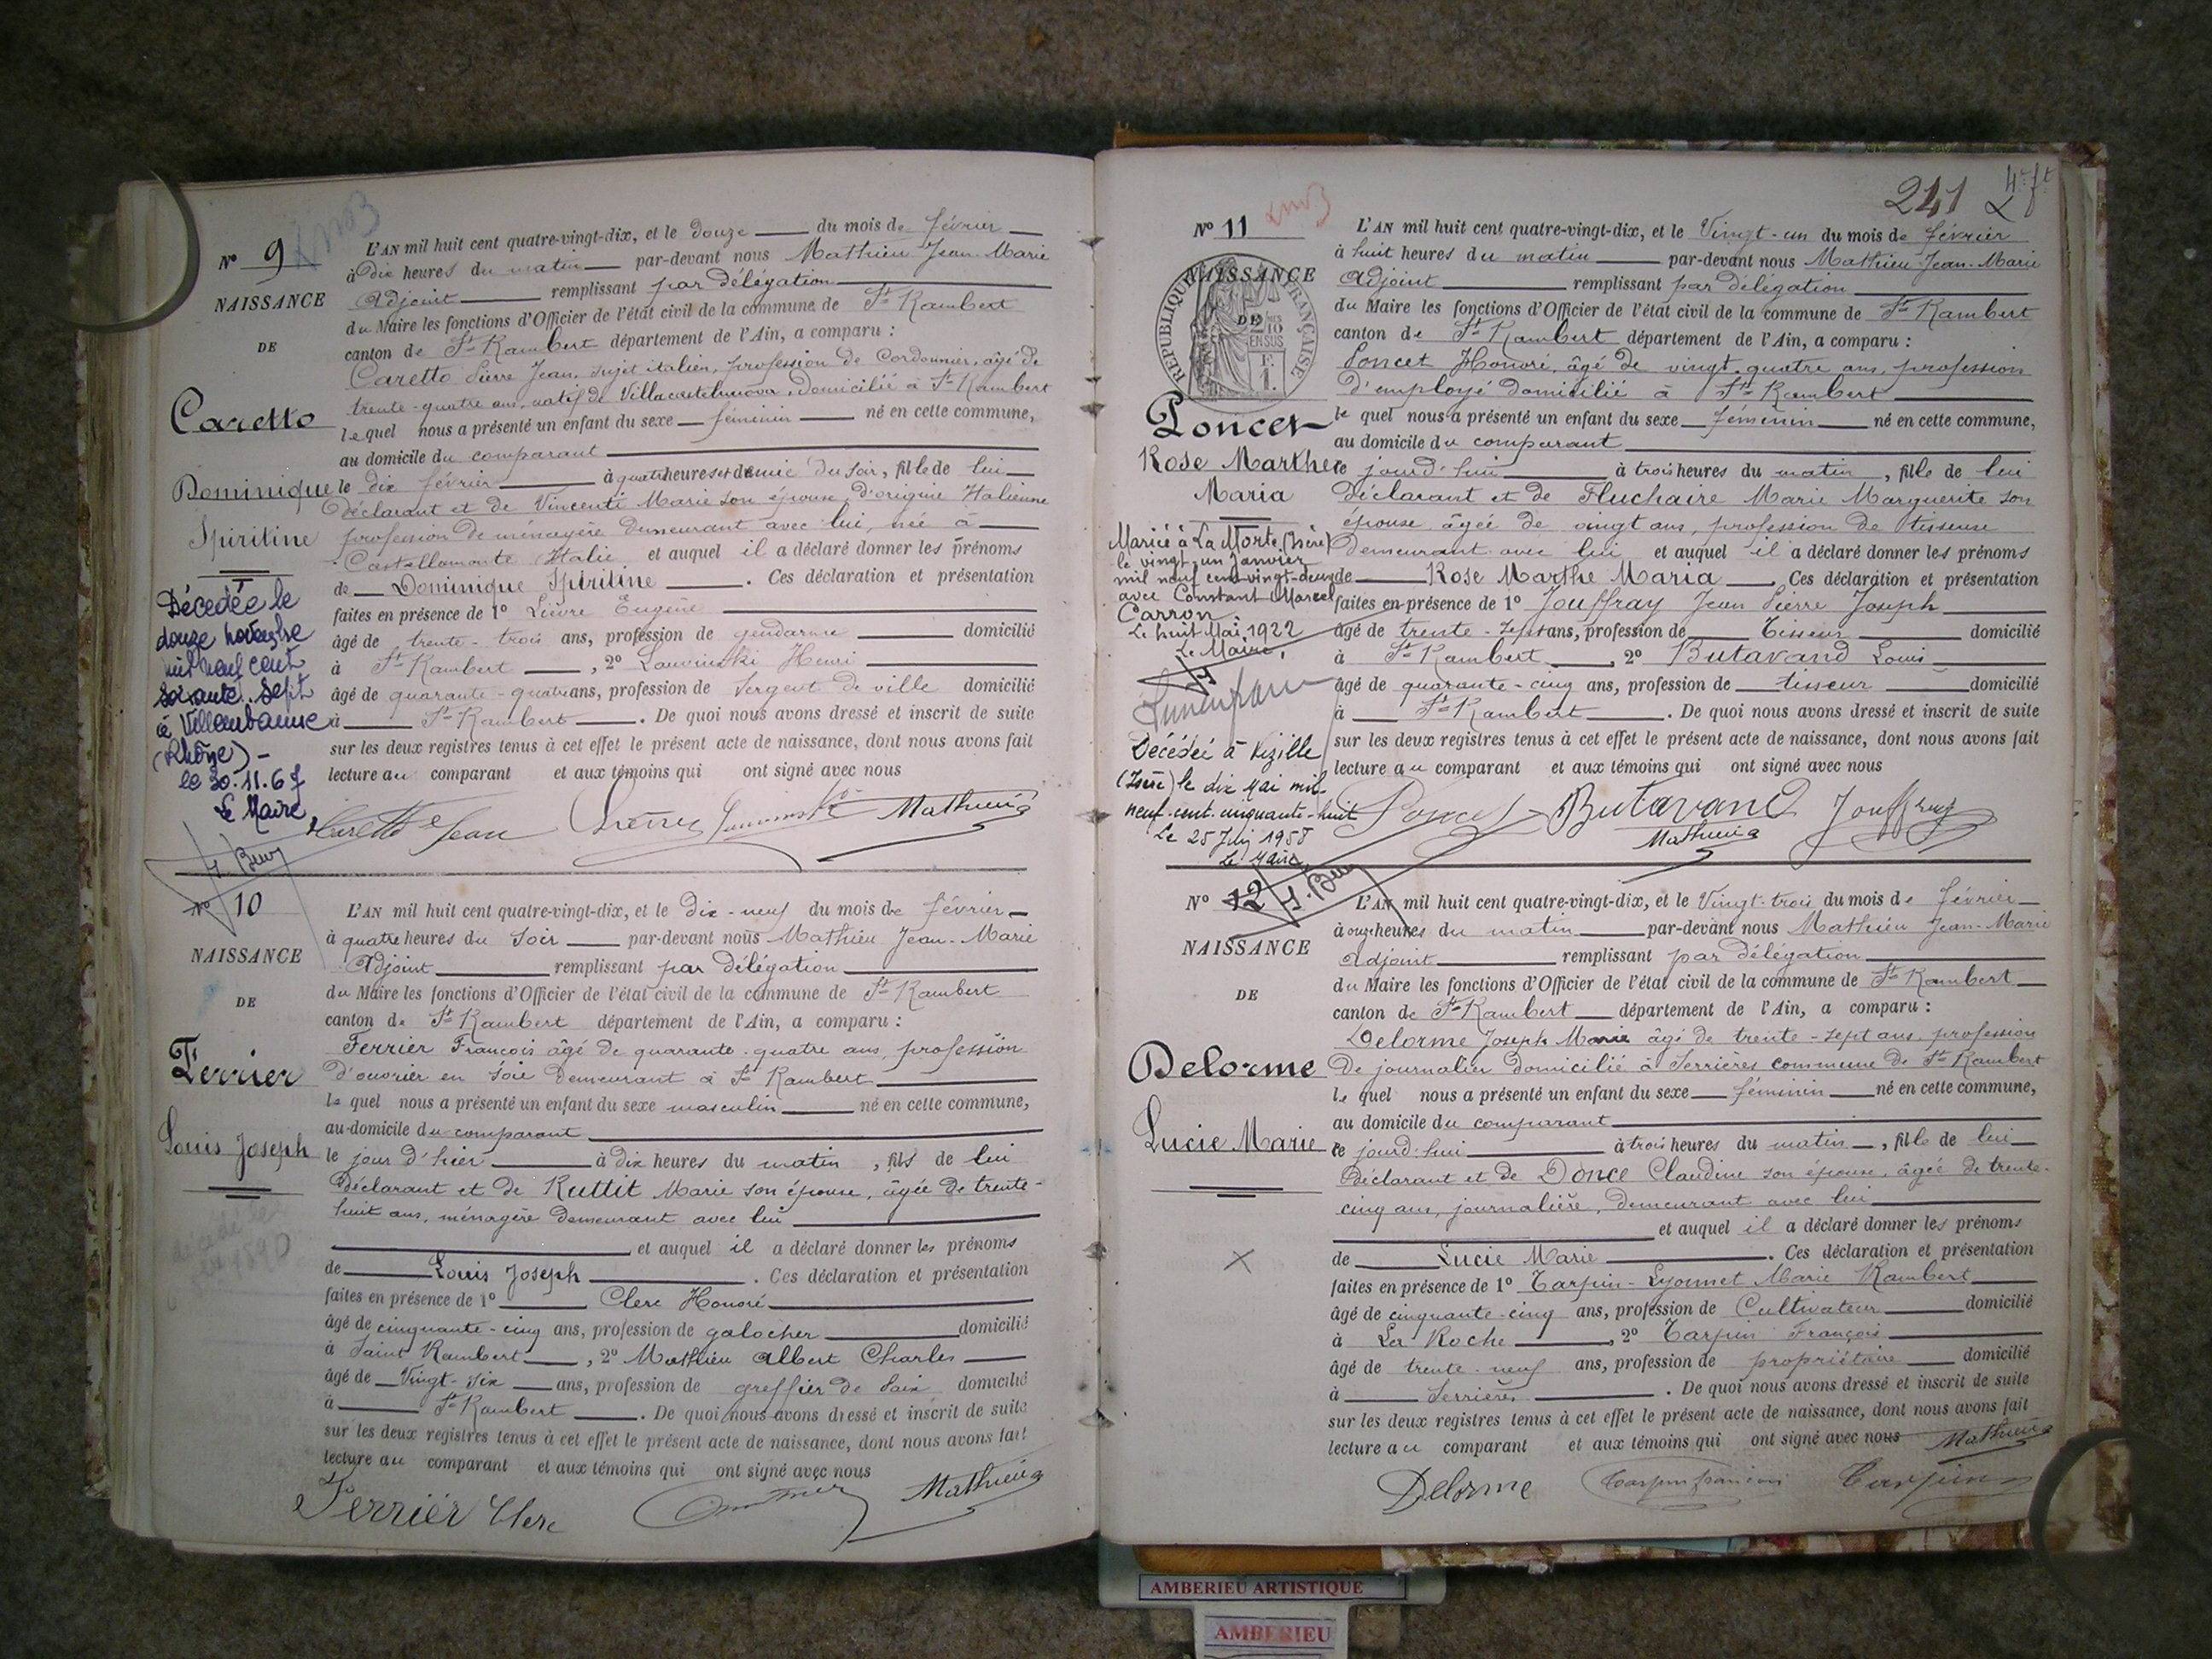 Nº 9
NAISSANCE
DE
Caretto
Dominique
Spiritine
Décédée le
douze novembre
mil neuf cent
soixante-sept
à Villeurbanne
(Rhône) -
le 30.11.67
Le Maire,
L'AN mil huit cent quatre-vingt-dix, et le douze du mois de février
à dix heures du matin par-devant nous Mathieu Jean-Marie
Adjoint remplissant par délégation
du Maire les fonctions d'Officier de l'état civil de la commune de St Rambert
canton de St Rambert département de l'Ain, a comparu :
Caretto Pierre Jean, sujet italien, profession de Cordonnier, âgé de
trente-quatre ans, natif de Villacastelnuova, domicilié à St Rambert
lequel nous a présenté un enfant du sexe féminin né en cette commune,
au domicile du comparant
le dix février à quatre heures et demie du soir, fille de lui
déclarant et de Vincenti Marie son épouse, d'origine Italienne
profession de ménagère demeurant avec lui, née à
Castellamonte Italie et auquel il a déclaré donner les prénoms
de Dominique Spiritine. Ces déclaration et présentation
faites en présence de 1º Lièvre Eugène
âgé de trente-trois ans, profession de gendarme domicilié
à St Rambert, 2º Henri
âgé de quarante-quatre ans, profession de Sergent de ville domicilié
à St Rambert. De quoi nous avons dressé et inscrit de suite
sur les deux registres tenus à cet effet le présent acte de naissance, dont nous avons fait
lecture au comparant et aux témoins qui ont signé avec nous
Caretto Jean Mathieu
Nº 10
NAISSANCE
DE
Ferrier
Louis Joseph
L'AN mil huit cent quatre-vingt-dix, et le dix-neuf du mois de février
à quatre heures du soir par-devant nous Mathieu Jean-Marie
Adjoint remplissant par délégation
du Maire les fonctions d'Officier de l'état civil de la commune de St Rambert
canton de St Rambert département de l'Ain, a comparu :
Ferrier François âgé de quarante-quatre ans, profession
d'ouvrier en soie demeurant à St Rambert
lequel nous a présenté un enfant du sexe masculin né en cette commune,
au domicile du comparant
le jour d'hier à dix heures du matin, fils de lui
déclarant et de Ruttit Marie son épouse, âgée de trente-
huit ans, ménagère demeurant avec lui
et auquel il a déclaré donner les prénoms
de Louis Joseph. Ces déclaration et présentation
faites en présence de 1º Clerc Honoré
âgé de cinquante-cinq ans, profession de galocher domicilié
à Saint Rambert, 2º Mathieu Albert Charles
âgé de Vingt-six ans, profession de greffier de Paix domicilié
à St Rambert. De quoi nous avons dressé et inscrit de suite
sur les deux registres tenus à cet effet le présent acte de naissance, dont nous avons fait
lecture au comparant et aux témoins qui ont signé avec nous
Ferrier Clerc Mathieu
241
Nº 11
NAISSANCE
DE
RÉPUBLIQUE FRANÇAISE
2/10 EN SUS
Poncet
Rose Marthe
Maria
Mariée à La Morte (Isère)
le vingt-un Janvier
mil neuf cent vingt-deux
avec Constant Marcel
Carron.
Le huit Mai 1922
Le Maire,
Décédée à Vizille
(Isère) le dix Mai mil-
neuf-cent-cinquante-huit
Le 25 Juin 1958
Le Maire,
L'AN mil huit cent quatre-vingt-dix, et le Vingt-un du mois de février
à huit heures du matin par-devant nous Mathieu Jean-Marie
Adjoint remplissant par délégation
du Maire les fonctions d'Officier de l'état civil de la commune de St Rambert
canton de St Rambert département de l'Ain, a comparu :
Poncet Honoré, âgé de vingt-quatre ans, profession
d'employé domicilié à St Rambert
lequel nous a présenté un enfant du sexe féminin né en cette commune,
au domicile du comparant
ce jourd'hui à trois heures du matin, fille de lui
déclarant et de Fluchaire Marie Marguerite son
épouse âgée de vingt ans, profession de tisseuse
demeurant avec lui et auquel il a déclaré donner les prénoms
de Rose Marthe Maria. Ces déclaration et présentation
faites en présence de 1º Jouffray Jean Pierre Joseph
âgé de trente-sept ans, profession de Tisseur domicilié
à St Rambert, 2º Butavand Louis
âgé de quarante-cinq ans, profession de tisseur domicilié
à St Rambert. De quoi nous avons dressé et inscrit de suite
sur les deux registres tenus à cet effet le présent acte de naissance, dont nous avons fait
lecture au comparant et aux témoins qui ont signé avec nous
Poncet Butavand Jouffray
Mathieu
Nº 12
NAISSANCE
DE
Delorme
Lucie Marie
L'AN mil huit cent quatre-vingt-dix, et le Vingt-trois du mois de février
à onze heures du matin par-devant nous Mathieu Jean-Marie
Adjoint remplissant par délégation
du Maire les fonctions d'Officier de l'état civil de la commune de St Rambert
canton de St Rambert département de l'Ain, a comparu :
Delorme Joseph Marie âgé de trente-sept ans profession
de journalier domicilié à Serrières commune de St Rambert
lequel nous a présenté un enfant du sexe féminin né en cette commune,
au domicile du comparant
ce jourd'hui à trois heures du matin, fille de lui
déclarant et de Donce Claudine son épouse, âgée de trente-
cinq ans, journalière, demeurant avec lui
et auquel il a déclaré donner les prénoms
de Lucie Marie. Ces déclaration et présentation
faites en présence de 1º Tarpin-Lyonnet Marie Rambert
âgé de cinquante-cinq ans, profession de Cultivateur domicilié
à La Roche, 2º Tarpin François
âgé de trente-neuf ans, profession de propriétaire domicilié
à Serrières. De quoi nous avons dressé et inscrit de suite
sur les deux registres tenus à cet effet le présent acte de naissance, dont nous avons fait
lecture au comparant et aux témoins qui ont signé avec nous Mathieu
Delorme Tarpin françois Tarpin
AMBERIEU ARTISTIQUE
AMBERIEU